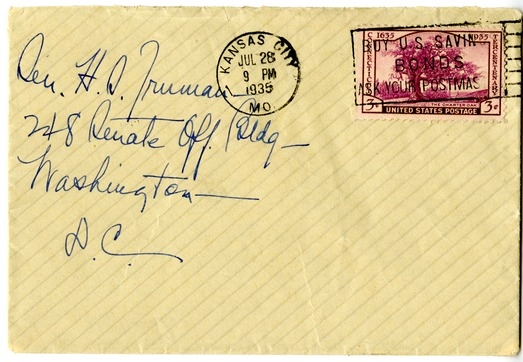 KANSAS CITY
JUL 28
9 PM
1935
MO.
BUY U.S. SAVIN
BONDS
ASK YOUR POSTMAS
1635 1935
CONNECTICUT
TERCENTENARY
THE CHARTER OAK
3¢ 3¢
UNITED STATES POSTAGE
Sen. H. S. Truman
248 Senate Off. Bldg—
Washington—
D.C.